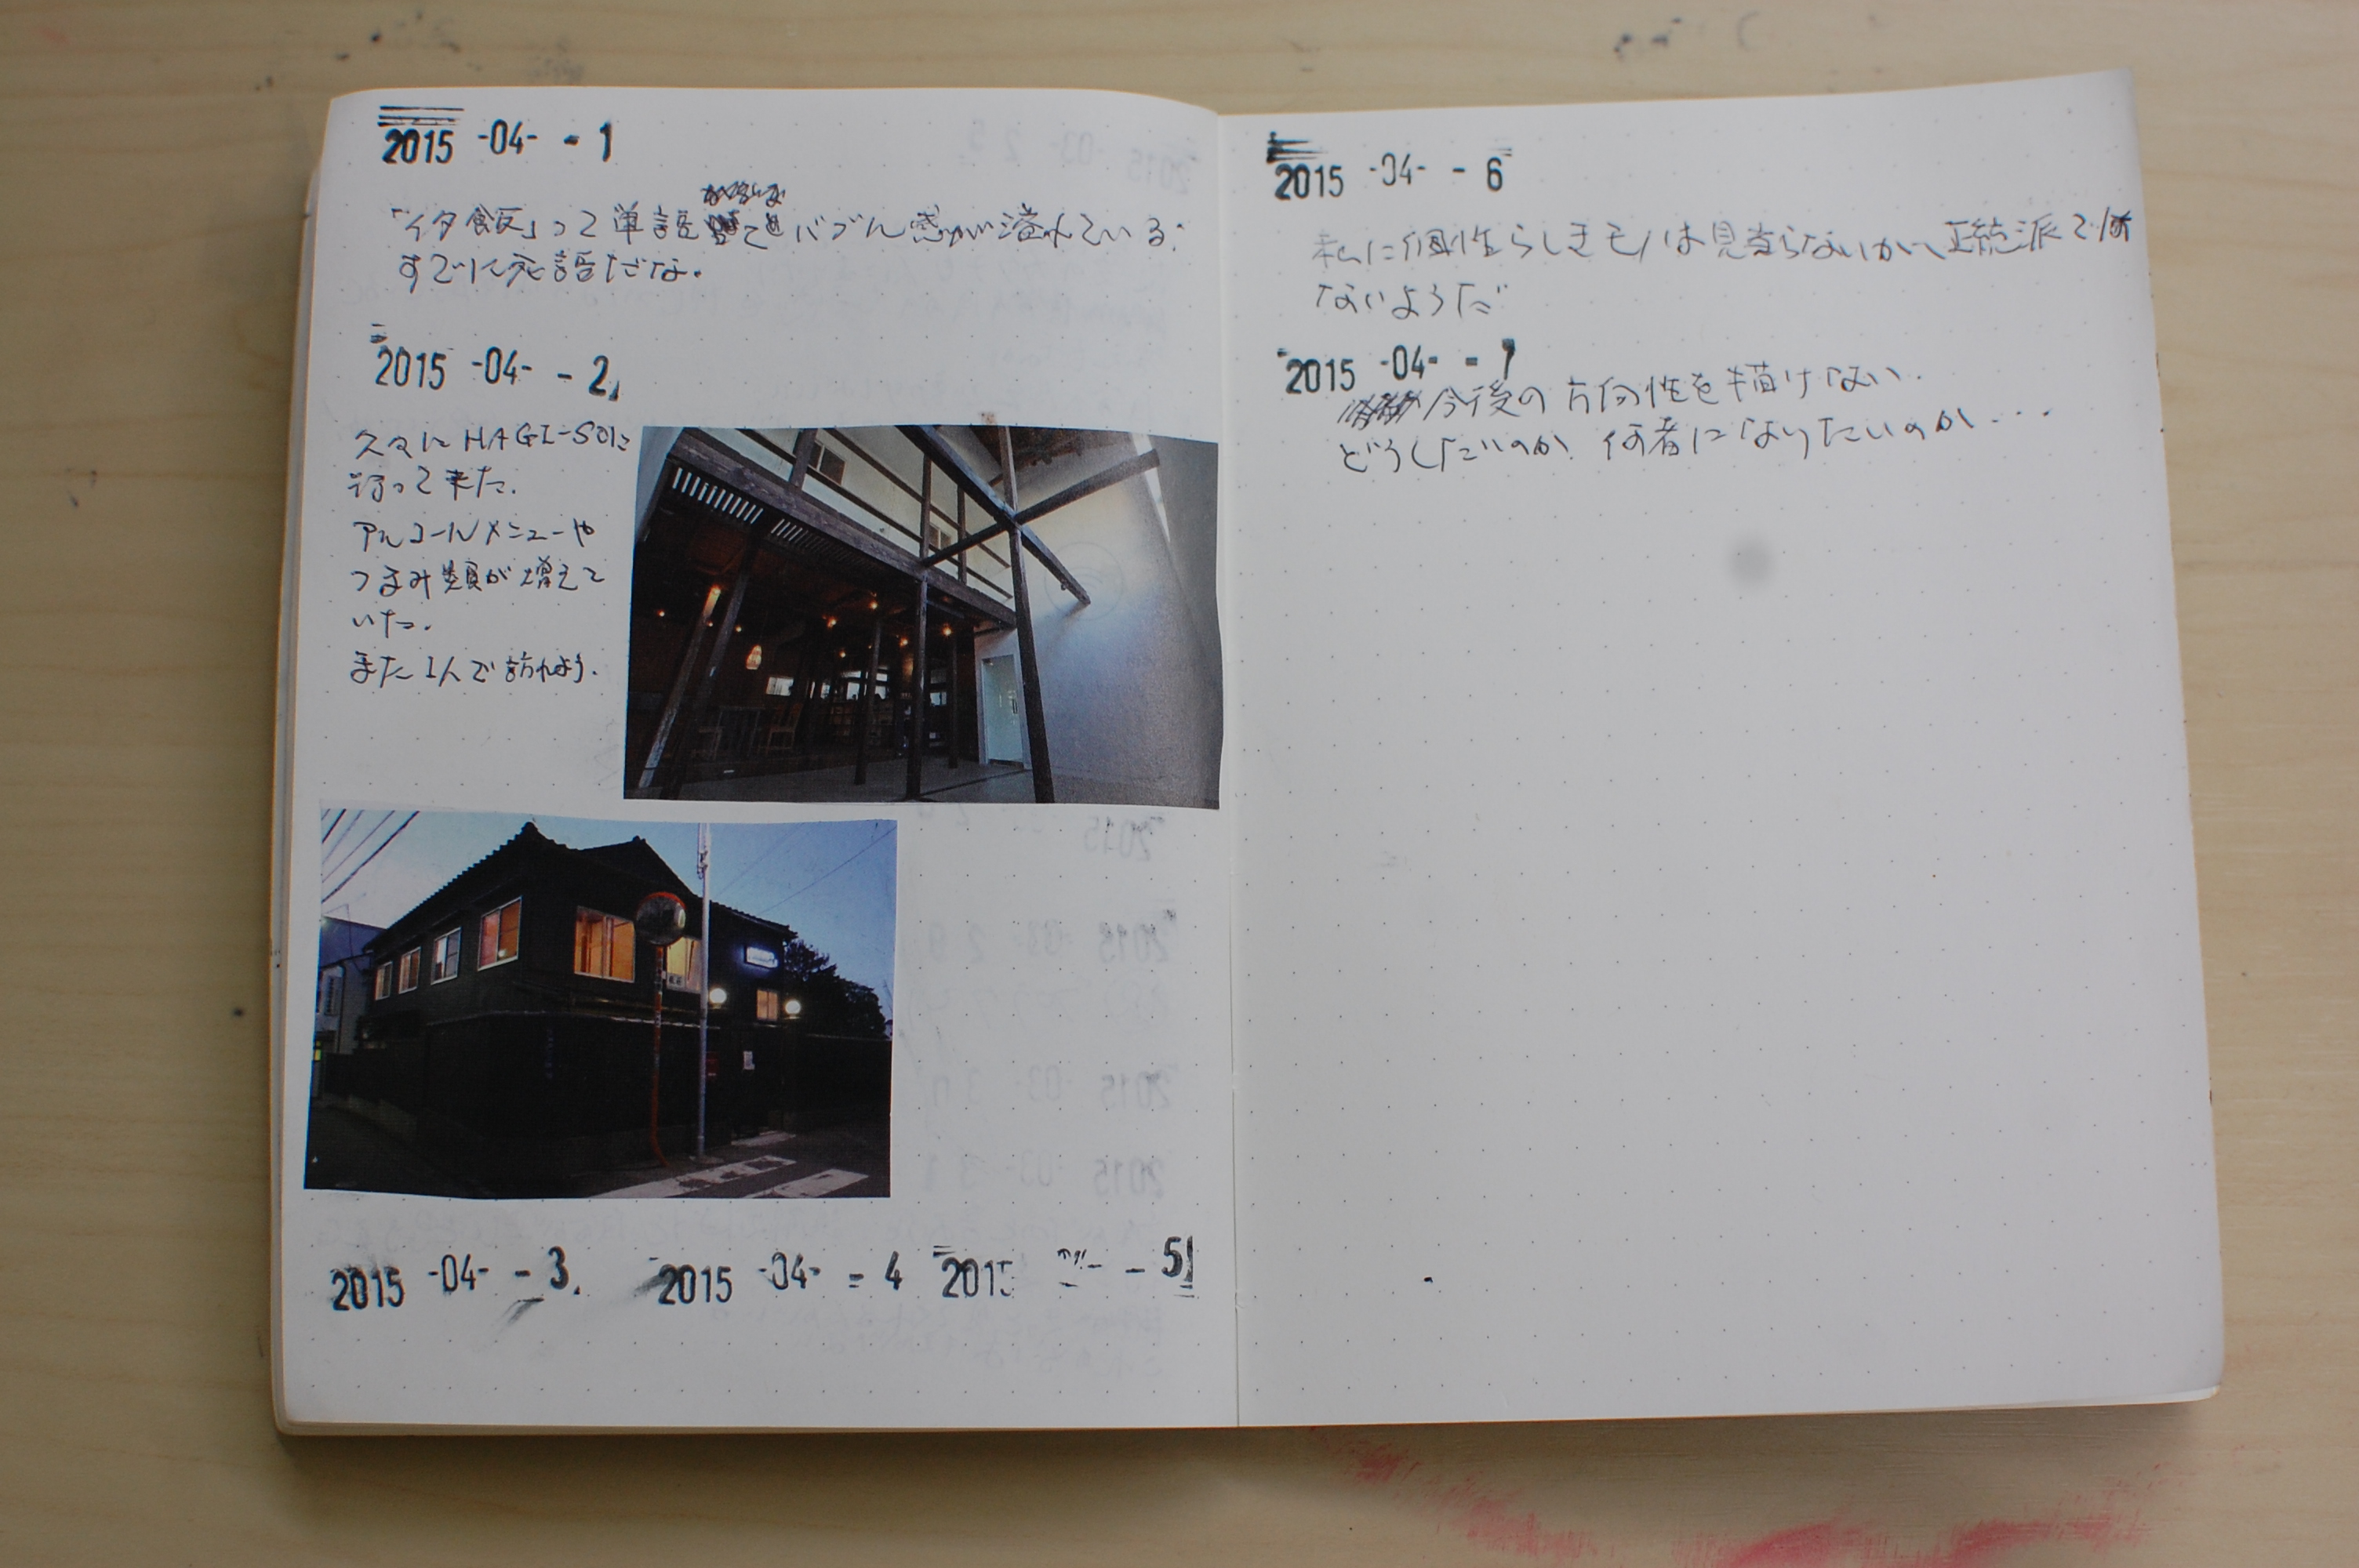 2015 -04- - 1
「イタ飯」って単語 バブル感が溢れている.
すでに死語だな.
2015 -04- - 2
久々に HAGI-SOに
行って来た.
アルコールメニューや
つまみ類が増えて
いた.
また1人で訪れよう.
2015 -04- - 3
2015 -04- - 4
2015 - 5
2015 -04- - 6
私に個性らしきモノは見当らないが、正統派では
ないようだ
2015 -04- - 7
今後の方向性を描けない.
どうしたいのか 何者になりたいのか...